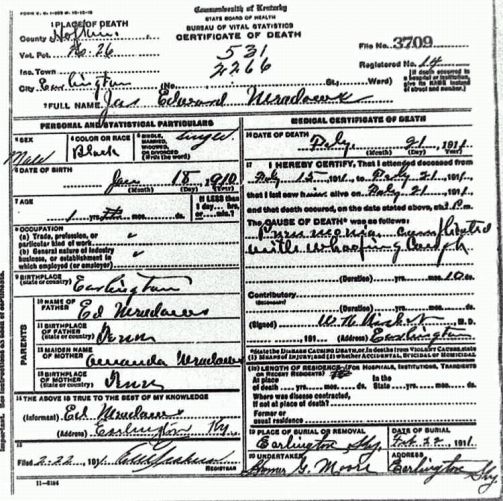 Commonwealth of Kentucky
STATE BOARD OF HEALTH
BUREAU OF VITAL STATISTICS
CERTIFICATE OF DEATH
1 PLACE OF DEATH
County Hopkins
Vot. Pct. No. 26
531
2266
File No. 3709
Registered No. 14
Inc. Town
City Earlington (No. St.; Ward)
2 FULL NAME Jas Edward
PERSONAL AND STATISTICAL PARTICULARS
3 SEX Male
4 COLOR OR RACE Black
5 SINGLE, MARRIED, WIDOWED, OR DIVORCED (Write the word) Single
6 DATE OF BIRTH Jan 18, 1910
(Month) (Day) (Year)
7 AGE 1 yrs. mos. ds.
If LESS than 1 day, hrs. or min.?
8 OCCUPATION
(a) Trade, profession, or particular kind of work "
(b) General nature of industry business, or establishment in which employed (or employer) "
9 BIRTHPLACE Earlington
PARENTS
10 NAME OF FATHER Ed
11 BIRTHPLACE OF FATHER Tenn
12 MAIDEN NAME OF MOTHER Amanda
13 BIRTHPLACE OF MOTHER Tenn
14 THE ABOVE IS TRUE TO THE BEST OF MY KNOWLEDGE
(Informant) Ed
(Address) Earlington Ky.
15 Filed 2-22, 1911
REGISTRAR
11-5184
MEDICAL CERTIFICATE OF DEATH
16 DATE OF DEATH Feby. 21 1911
(Month) (Day) (Year)
17 I HEREBY CERTIFY, That I attended deceased from
Feby 15, 1911, to Feby 21, 1911,
that I last saw alive on Feby 21, 1911,
and that death occurred, on the date stated above, at P.m.
The CAUSE OF DEATH* was as follows:
Pneumonia complicated
with whooping Cough
(Duration) yrs. mos. 10 ds.
Contributory
(Duration) yrs. mos. ds.
(Signed) M.D.
191 (Address) Earlington
18 LENGTH OF RESIDENCE (FOR HOSPITALS, INSTITUTIONS, TRANSIENTS OR RECENT RESIDENTS)
At place of death yrs. mos. ds. In the State yrs. mos. ds.
Where was disease contracted, if not at place of death?
Former or usual residence
19 PLACE OF BURIAL OR REMOVAL Earlington Ky.
DATE OF BURIAL Feb. 22, 1911
20 UNDERTAKER Homer G. Moore
ADDRESS Earlington Ky